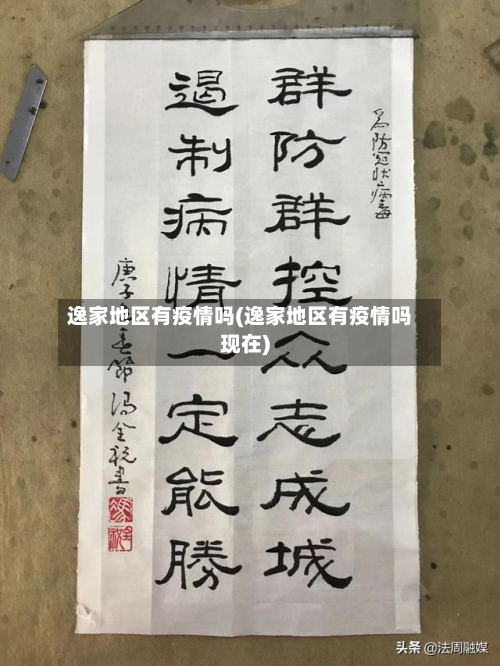 為防冠状病毒
群防群控众志成城
遏制病情一定能勝
庚子春節馮金書
逸家地区有疫情吗(逸家地区有疫情吗
现在)
头条 @法周融媒